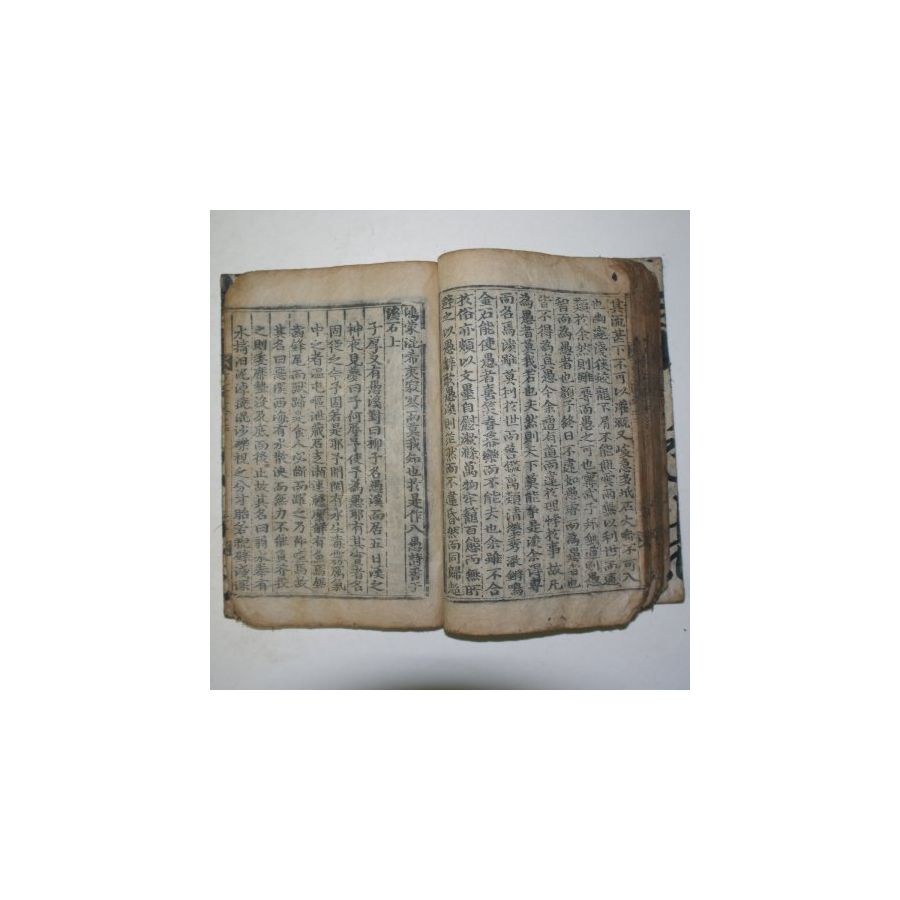 其流甚下不可以灌漑又峻急多坻石大舟不可入
也幽邃淺狹蛟龍不屑不能興雲雨無以利世而適
類於余然則雖辱而愚之可也甯武子邦無道則愚
智而為愚者也顔子終日不違如愚睿而為愚者也
皆不得為真愚今余遭有道而違於理悖於事故凡
為愚者莫我若也夫然則天下莫能爭是溪余得專
而名焉溪雖莫利於世而善鑑萬類清瑩秀澈鏘鳴
金石能使愚者喜笑眷慕樂而不能去也余雖不合
於俗亦頗以文墨自慰漱滌萬物牢籠百態而無所
避之以愚辭歌愚溪則茫然而不違昏然而同歸超
鴻蒙混希夷寂寥而莫我知也於是作八愚詩書于
溪石上
子厚又有愚溪對曰柳子名愚溪而居五日溪之
神夜見夢曰子何辱予使予為愚耶有其實者名
固從之今予固若是耶予聞閩有水生毒霧厲氣
中之者溫屯嘔泄藏石走瀨連艫糜解有魚焉鋸
齒鋒尾而獸蹄是食人必斷而躍之乃仰噬焉故
其名曰惡溪西海有水散渙而無力不能負芥投
之則委靡墊沒及底而後止故其名曰弱水秦有
水掎汨泥淖撓混沙礫視之分寸眙若睨壁淺深